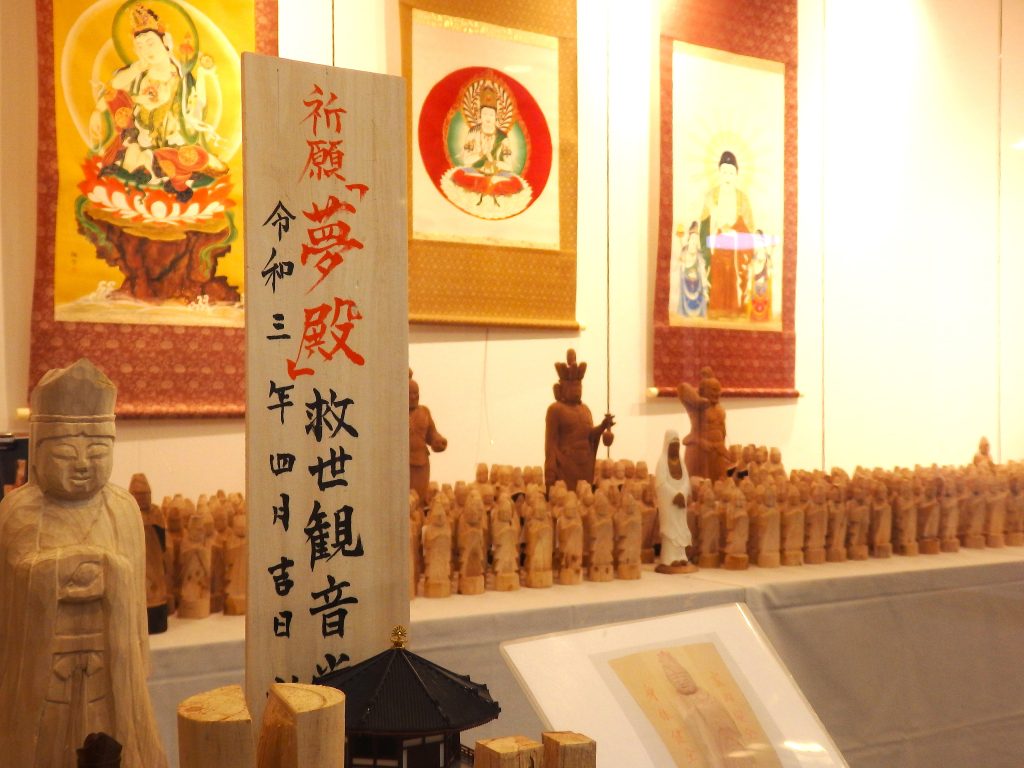 祈願「夢殿」救世観音
令和三年四月吉日